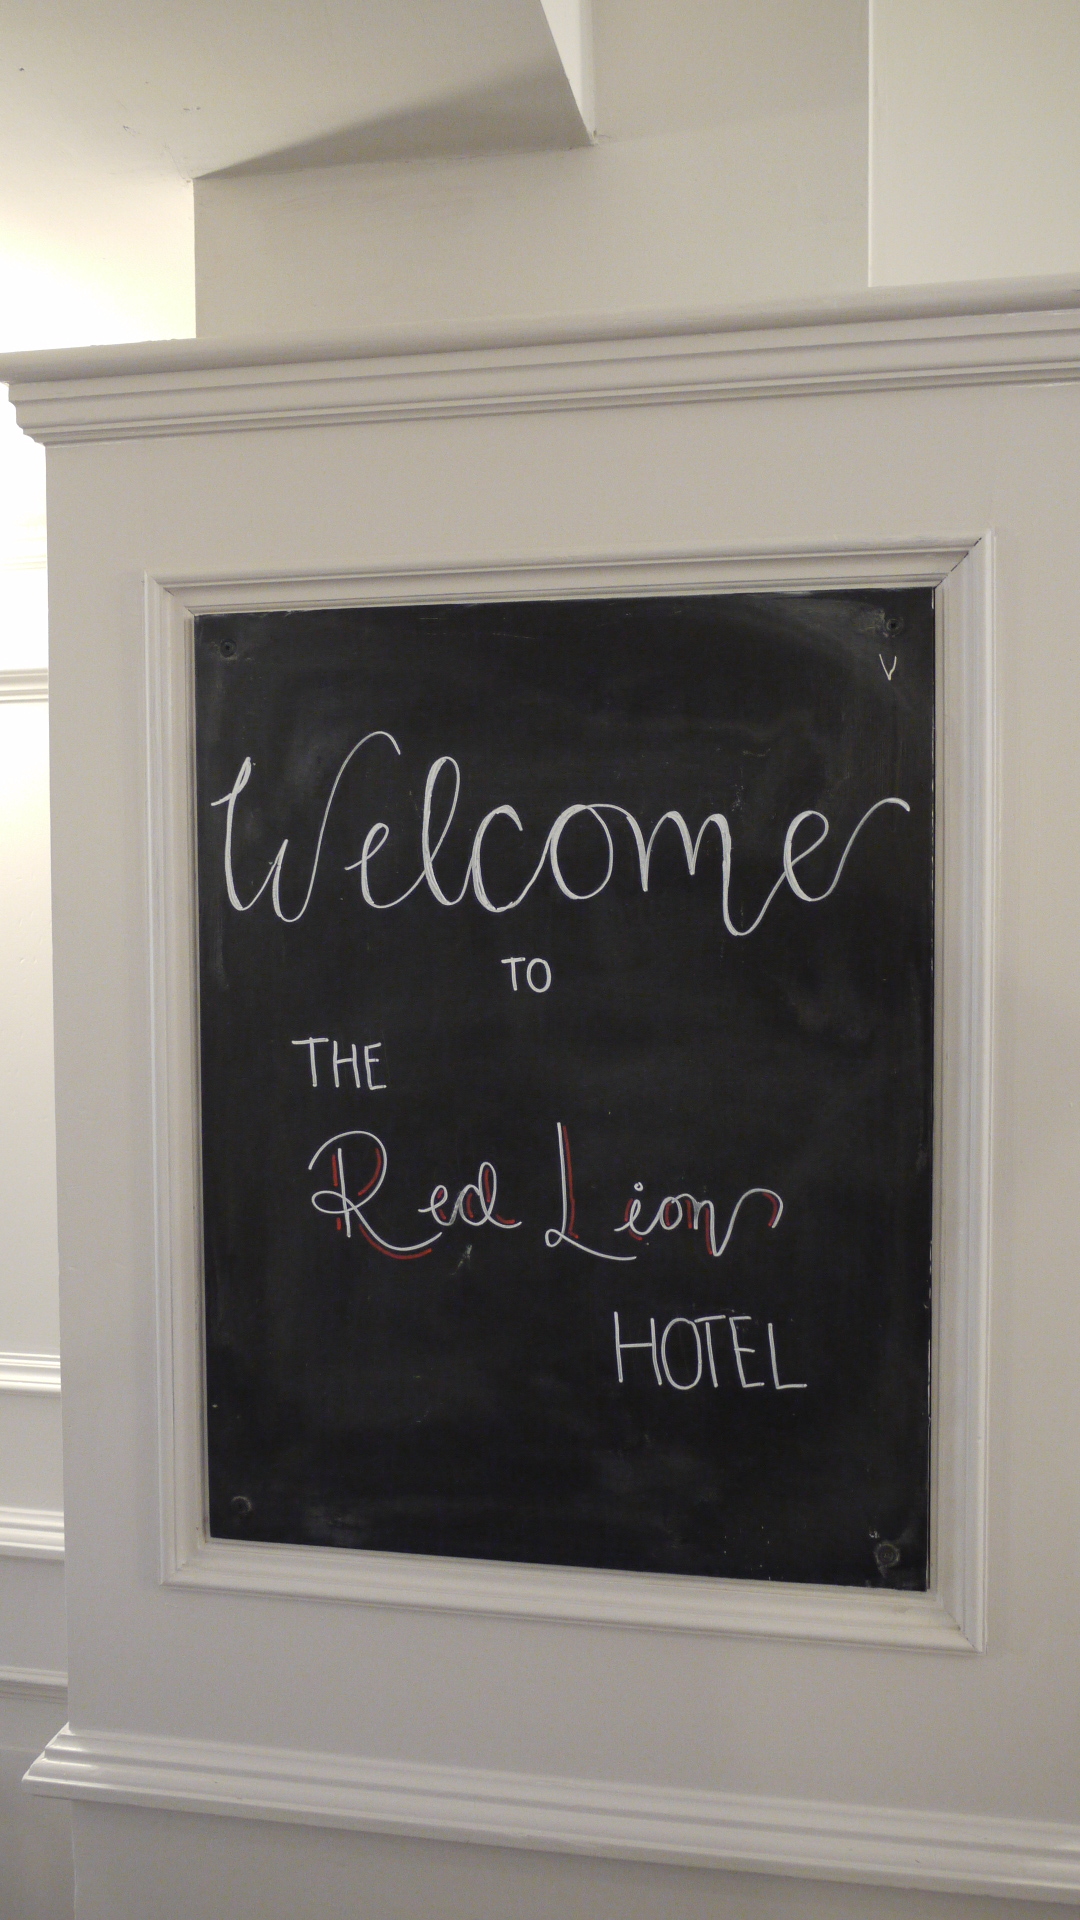 V
Welcome
TO
THE
Red Lion
HOTEL